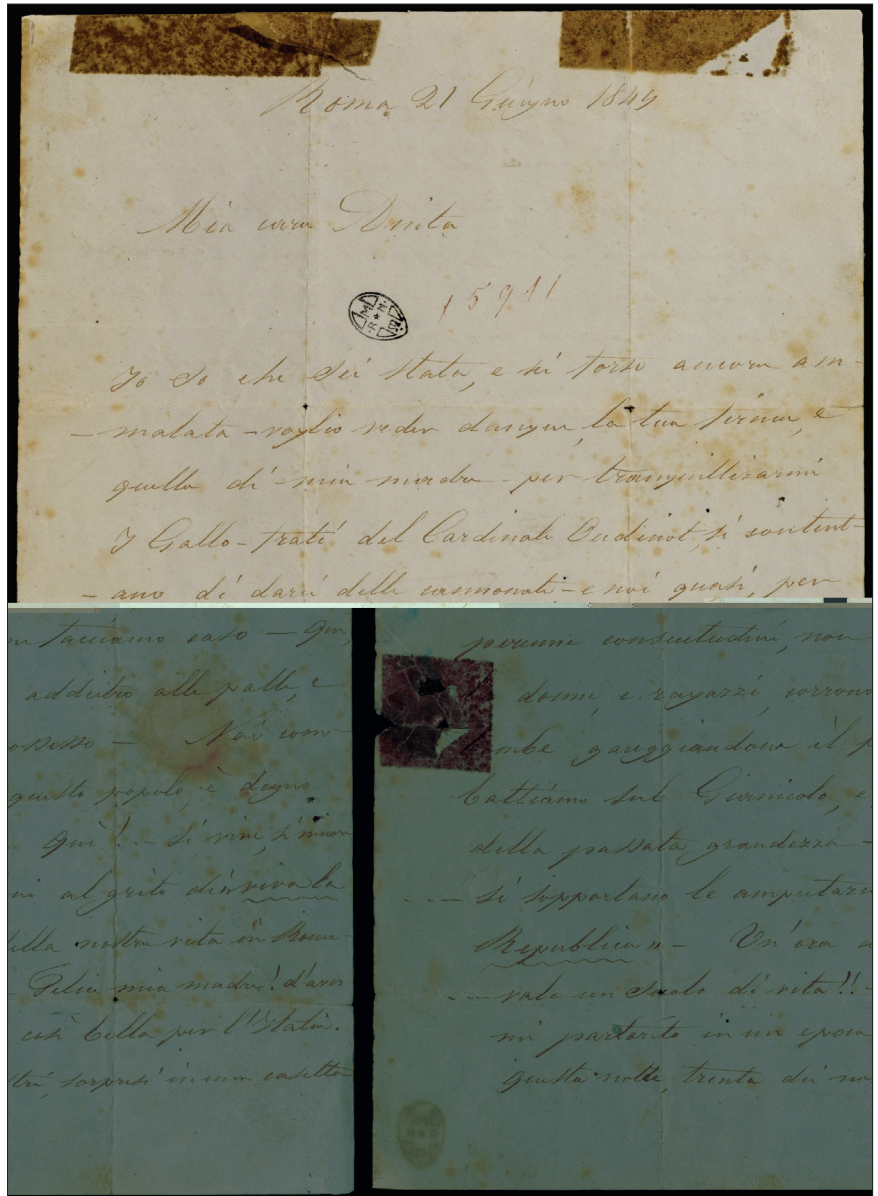 Roma 21 Giugno 1849
Mia cara Anita
15911
Io so che sei stata, e sei forse ancora am-
-malata - voglio veder dunque la tua firma, e
quella di mia madre per tranquillizarmi
I Gallo-frati del Cardinale Oudinot, si content-
-ano di darci delle cannonate - e noi quasi, per
facciamo caso - Qui,
addietro alle palle, e
ossesso - Noi com-
questo popolo è degno
Qui! - si vive, si muore
ni al grito di «viva la
della nostra vita in Roma
- Felice mia madre! d'aver
così bella per l'Italia.
stri, sorpresi in una casetta
perenne consuetudine, non
donne, e ragazzi, corrono
mbe gareggiandone il p
battiamo sul Gianicolo, e
della passata grandezza -
si sopportano le amputazio
Republica» - Un'ora d
vale un secolo di vita!! -
mi partorito in un epoca
Questa notte, trenta dei no